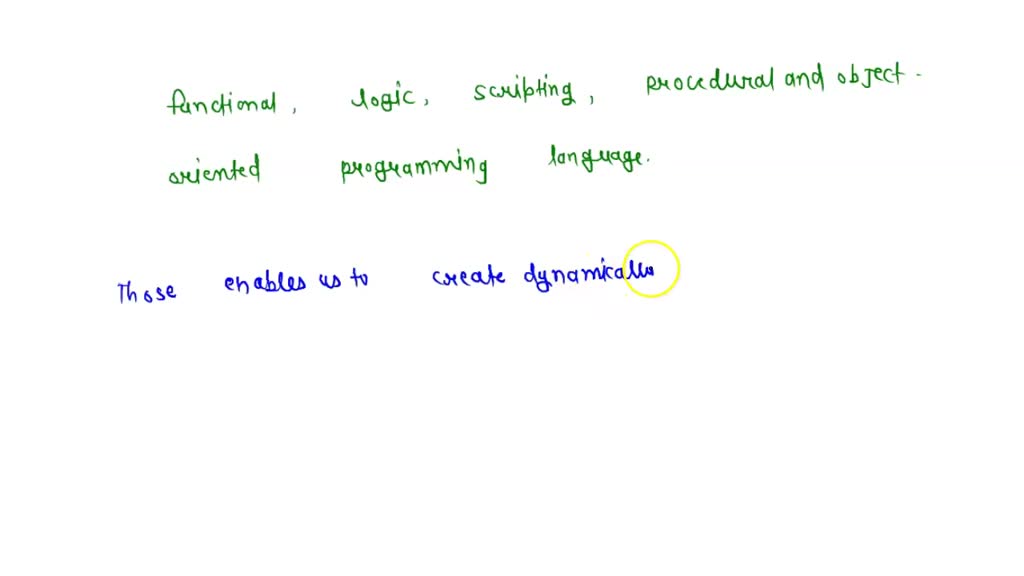 functional, logic, scripting, procedural and object-
oriented programming language.
Those enables us to create dynamically